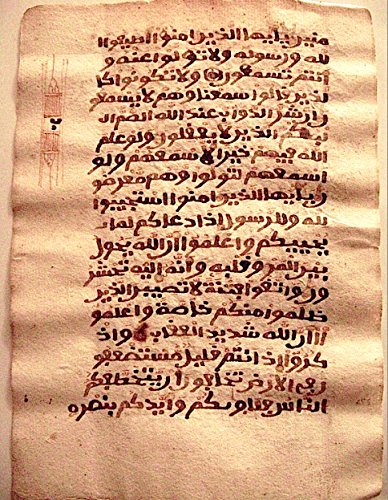 منين يايها الذين امنوا اطيعوا ا
لله ورسوله ولا تولوا عنه و
انتم تسمعون ولا تكونوا كا
لذين قالوا سمعنا وهم لا يسمعو
ن ان شر الدواب عند الله الصم ا
لبكم الذين لا يعقلون ولو علم
الله فيهم خيرا لاسمعهم ولو
اسمعهم لتولوا وهم معرضو
ن يايها الذين امنوا استجيبوا
لله وللرسول اذا دعاكم لما
يحييكم واعلموا ان الله يحول
بين المرء وقلبه وانه اليه تحشر
ون واتقوا فتنة لا تصيبن الذين
ظلموا منكم خاصة واعلمو
ا ان الله شديد العقاب واذ
كروا اذ انتم قليل مستضعفو
ن في الارض تخافون ان يتخطفكم
الناس فئاويكم وايدكم بنصره